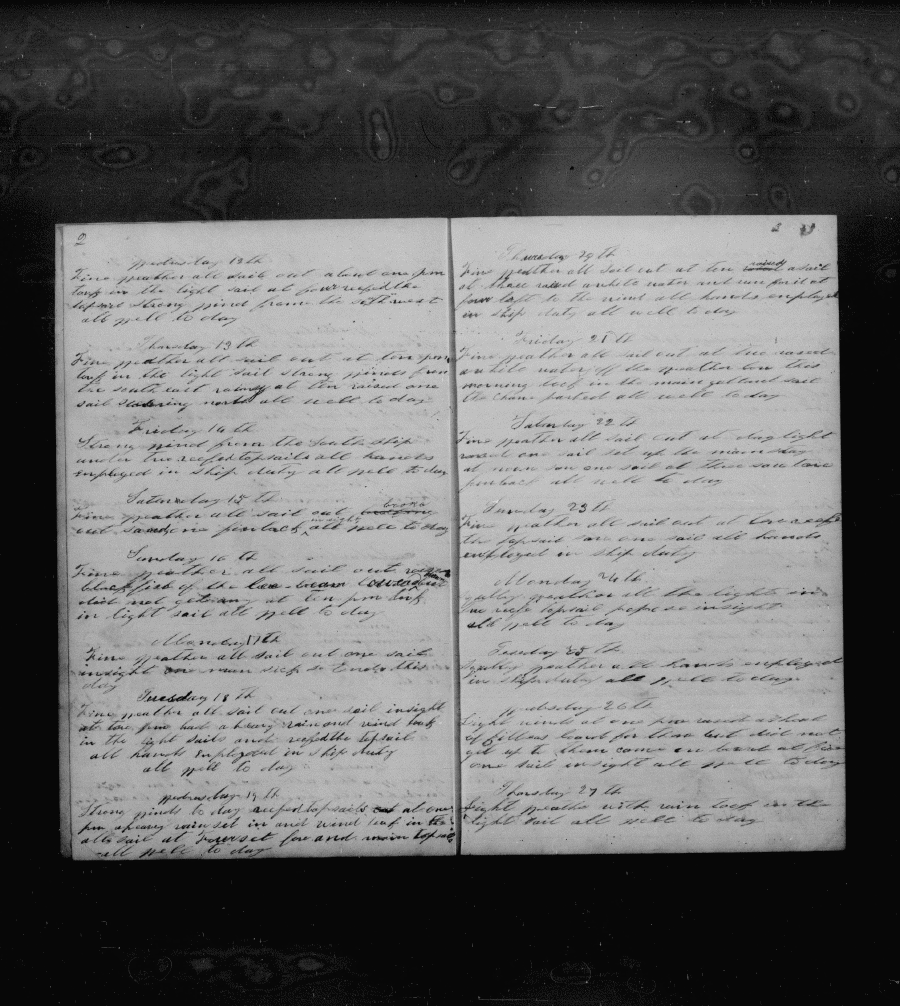 2
Wednesday 12th
Fine weather all sail out about one pm
took in the light sail at four reefed the
topsail strong wind from the
all well to day
Thursday 13th
Fine weather all sail out at ten pm
took in the light sail strong winds from
the south east at ten raised one
sail north all well to day
Friday 14th
Strong wind from the south ship
under two reefed topsails all hands
employed in ship duty all well to day
Saturday 15th
Fine weather all sail out
one finback insight all well to day
Sunday 16th
Fine weather all sail out
blackfish of the lee beam lowered
did not get any at ten pm took
in light sail all well to day
Monday 17th
Fine weather all sail out one sail
insight one man sick so ends this
day
Tuesday 18th
Fine weather all sail out one sail insight
at two pm had a heavy rain and wind took
in the light sails and reefed the topsail
all hands employed in ship duty
all well to day
Wednesday 19th
Strong winds to day reefed topsails at one
pm a heavy rain set in and wind took in the
sail at four set fore and main topsail
all well to day
3
Thursday 20th
Fine weather all sail out at ten raised a sail
at three raised a white water and run for it at
four luft to the wind all hands employed
in ship duty all well to day
Friday 21th
Fine weather all sail out at two raised
a white water off the weather bow this
morning took in the main gallant sail
the parted all well to day
Saturday 22th
Fine weather all sail out at day light
raised one sail set up the main stay
at noon saw one sail at three saw two
finback all well to day
Sunday 23th
Fine weather all sail out at two reefed
the topsail saw one sail all hands
employed in ship duty
Monday 24th
weather all the lights in
two reefs topsail insight
all well to day
Tuesday 25th
weather all hands employed
in ship duty all well to day
Wednesday 26th
Light winds at one pm raised a
of lowered for them but did not
get up to them come on board at five
one sail insight all well to day
Thursday 27th
Light weather with rain took in the
light sail all well to day